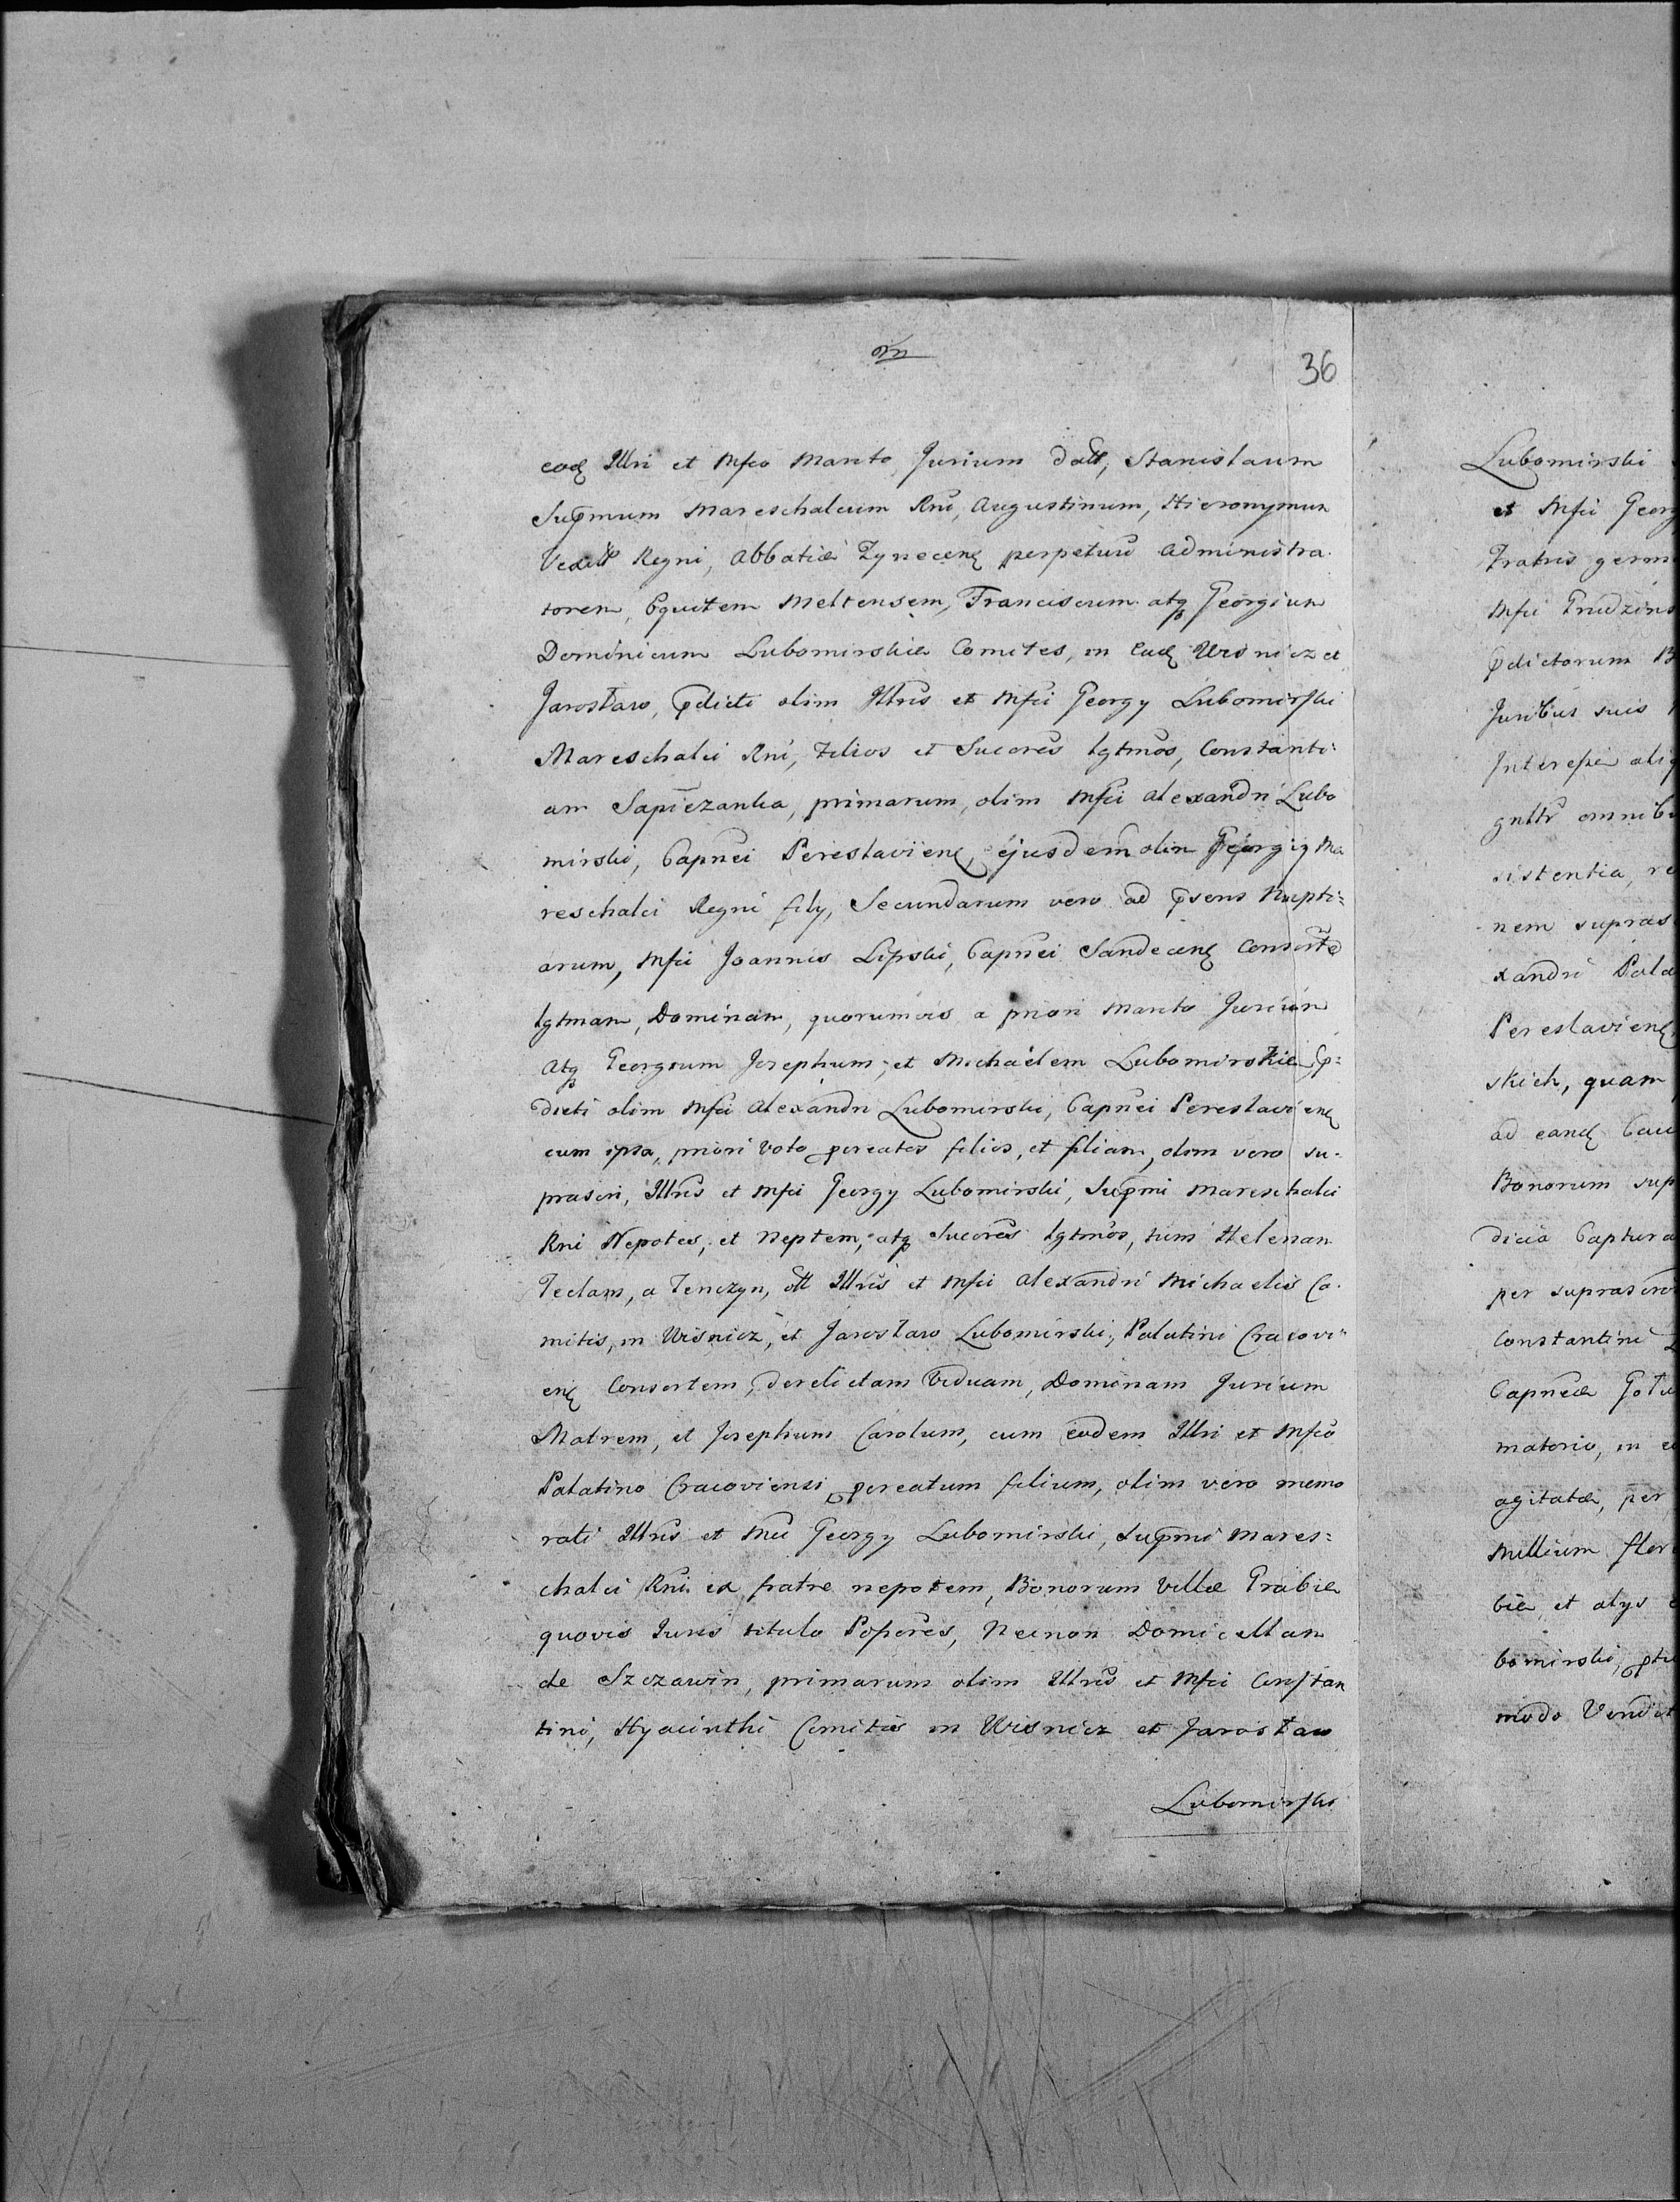 36
eodę Illri et Mfco Marito Jurium datt, Stanislaum
Supmum Mareschalcum Rni, Augustinum, Hieronymum
Vexill Regni, Abbatiæ Tynecenę perpetuū Administra-
torem, Equitem Meltensem, Franciscum atq Georgium
Dominicum Lubomirskie Comites, in eadę Wisnicz et
Jarosław, pdicti olim Illris et Mfci Georgy Lubomirski
Mareschalci Rni, Filios et Sucores lgtmos, Constanti:
am Sapiezanka, primarum olim Mfci Alexandri Lubo
mirski, Capnei Pereslavienę, ejusdem olim Georgij Ma
reschalci Regni fily, Secundarum vero ad psens Nupti:
arum, Mfci Joannis Lipski, Capnei Sandecenę Consorte
lgtmam, Dominam, quorumvis a priori Marito Jurium
Atq Georgium Josephum, et Michaelem Lubomirskie, p:
dicti olim Mfci Alexandri Lubomirski, Capnei Pereslavienę
cum ipsa, priori voto pcreatos filios, et filiam, olim vero su-
prascri, Illris et Mfci Georgy Lubomirski, Supmi Mareschalci
Rni Nepotes, et Neptem, atq Sucores lgtmos, tum Helenam
Teclam, a Tenczyn, ott Illris et Mfci Alexandri Michaelis Co-
mitis, in Wisnicz, et Jarosław Lubomirski, Palatini Cracovi-
enę Consortem, derelictam Viduam, Dominam Jurium
Matrem, et Josephum Carolum, cum eodem Illri et Mfco
Palatino Cracoviensi pcreatum filium, olim vero memo
rati Illris et Mci Georgy Lubomirski, Supmi Mares:
chalci Rni ex fratre nepotem, Bonorum Villæ Grabie
quovis Juris titulo Popores, Necnon Domicellam
de Szczawin, primarum olim Illris et Mfci Constan
tini, Hyacinthi Comitis in Wisnicz et Jarosław
Lubomirski
Lubomirski
et Mfci Georg
Fratris germ
Mfci Grudzins
pdictorum B
Juribus suis
Interesse aliq
gnltr omnib
sistentia, re
nem supras
xandri Pala
Pereslavienę
skich, quam
ad eandę Cau
Bonorum sup
dicia Captura
per suprascr
Constantini
Capnea
matorio, in
agitata, per
Millium flor
bie et alys
bomirski, ptu
modo Vendit